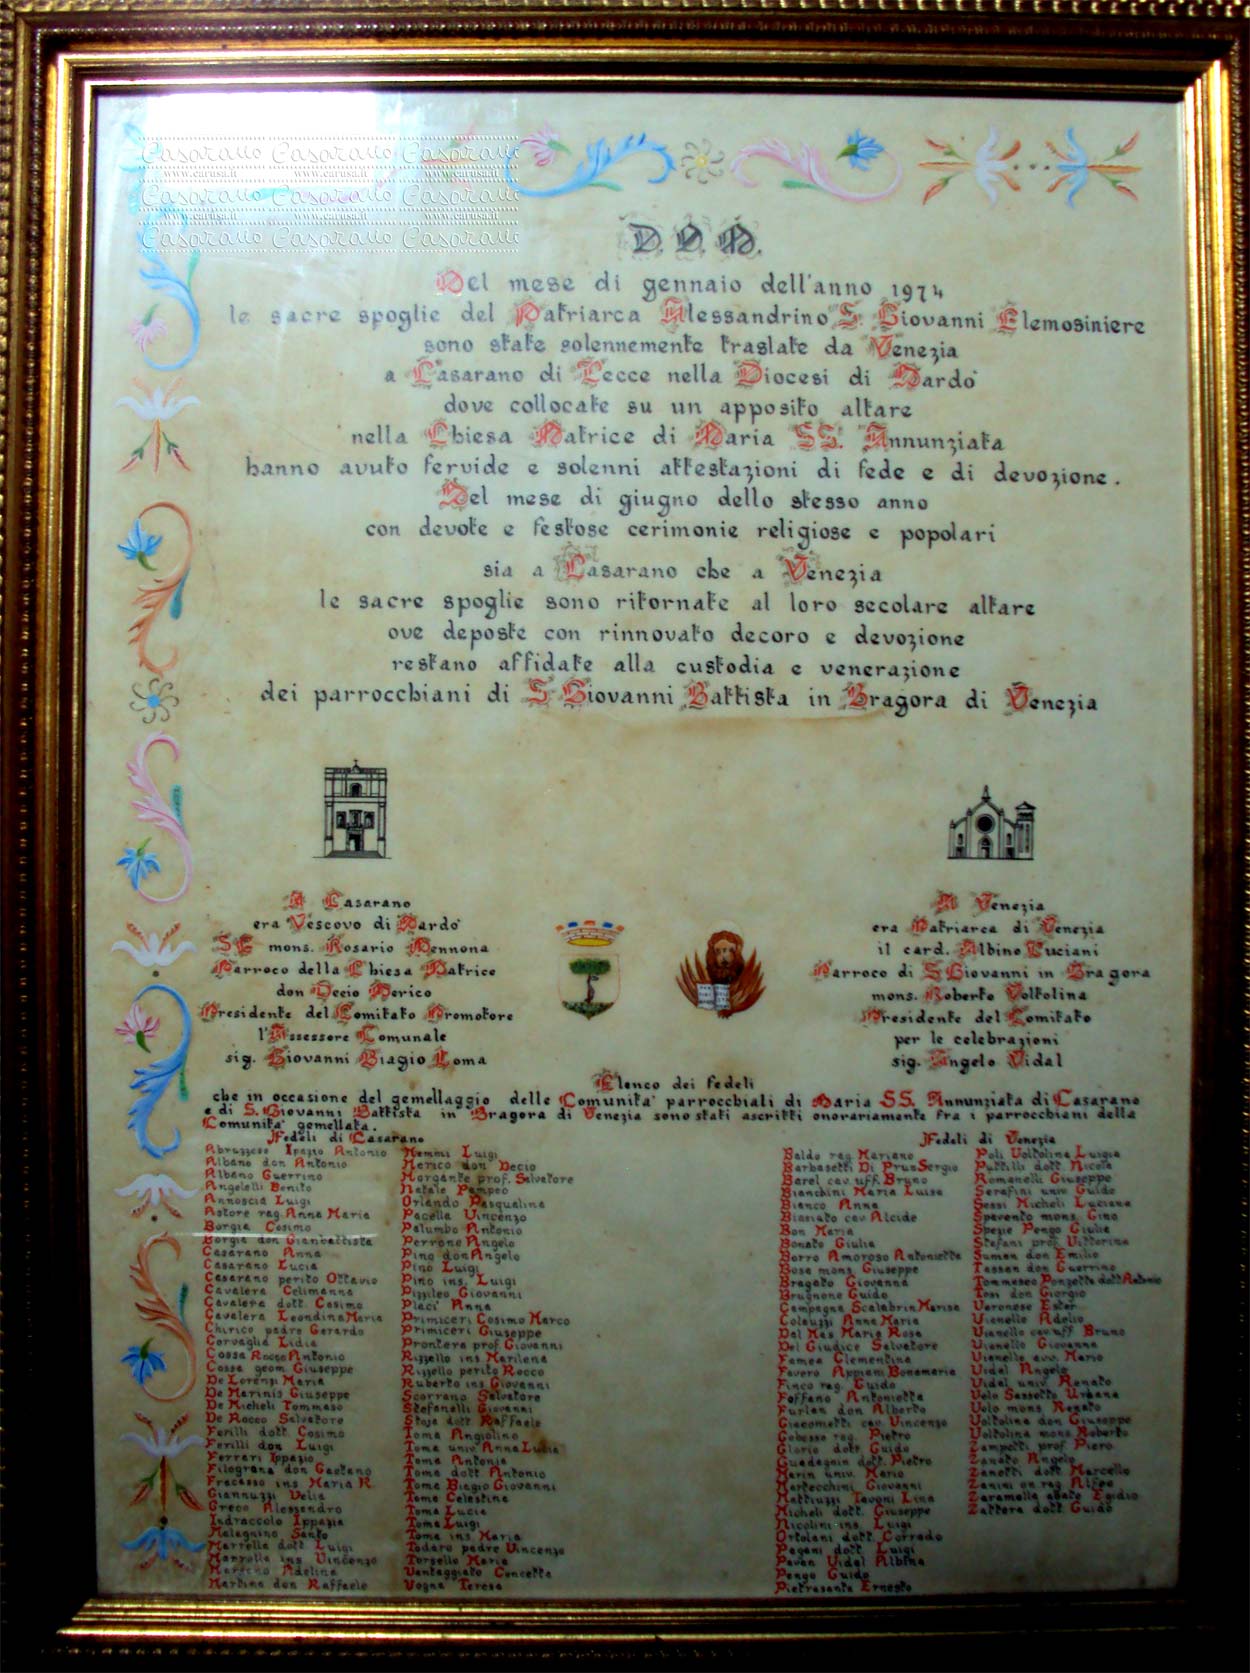 Casarano Casarano Casarano
www.carusa.it www.carusa.it www.carusa.it
Casarano Casarano Casarano
www.carusa.it www.carusa.it www.carusa.it
Casarano Casarano Casarano
D. O. M.
Nel mese di gennaio dell'anno 1974
le sacre spoglie del Patriarca Alessandrino S. Giovanni Elemosiniere
sono state solennemente traslate da Venezia
a Casarano di Lecce nella Diocesi di Nardo'
dove collocate su un apposito altare
nella Chiesa Matrice di Maria SS. Annunziata
hanno avuto fervide e solenni attestazioni di fede e di devozione.
Nel mese di giugno dello stesso anno
con devote e festose cerimonie religiose e popolari
sia a Casarano che a Venezia
le sacre spoglie sono ritornate al loro secolare altare
ove deposte con rinnovato decoro e devozione
restano affidate alla custodia e venerazione
dei parrocchiani di S. Giovanni Battista in Bragora di Venezia
A Casarano
era Vescovo di Nardo'
SE mons. Rosario Mennona
Parroco della Chiesa Matrice
don Decio Merico
Presidente del Comitato Promotore
l'Assessore Comunale
sig. Giovanni Biagio Toma
A Venezia
era Patriarca di Venezia
il card. Albino Luciani
Parroco di S. Giovanni in Bragora
mons. Roberto Voltolina
Presidente del Comitato
per le celebrazioni
sig. Angelo Vidal
Elenco dei fedeli
che in occasione del gemellaggio delle Comunita' parrocchiali di Maria SS. Annunziata di Casarano
e di S. Giovanni Battista in Bragora di Venezia sono stati ascritti onorariamente fra i parrocchiani della
Comunita' gemellata.
Fedeli di Casarano
Abruzzese Ipazio Antonio
Albano don Antonio
Albano Guerrino
Angelelli Benito
Annoscia Luigi
Astore rag. Anna Maria
Borgia Cosimo
Borgia don Gianbattista
Casarano Anna
Casarano Lucia
Casarano perito Ottavio
Cavalera Celimanna
Cavalera dott. Cosimo
Cavalera Leondina Maria
Chirico padre Gerardo
Corvaglia Lidia
Cossa Rocco Antonio
Cossa geom. Giuseppe
De Lorenzi Maria
De Marinis Giuseppe
De Micheli Tommaso
De Rocco Salvatore
Ferilli dott. Cosimo
Ferilli don Luigi
Ferrari Ippazio
Filograna don Gaetano
Fracasso ins. Maria R.
Giannuzzi Velia
Greco Alessandro
Indraccolo Ippazia
Malagnino Santo
Marrella dott. Luigi
Marrella ins. Vincenzo
Adelina
Martina don Raffaele
Memmi Luigi
Merico don Decio
Morgante prof. Salvatore
Natale Pompeo
Orlando Pasqualina
Pacella Vincenzo
Palumbo Antonio
Perrone Angelo
Pino don Angelo
Pino Luigi
Pino ins. Luigi
Pizzileo Giovanni
Placi' Anna
Primiceri Cosimo Marco
Primiceri Giuseppe
Prontera prof. Giovanni
Rizzello ins. Marilena
Rizzello perito Rocco
Ruberto ins. Giovanni
Scorrano Salvatore
Stefanelli Giovanni
Staja dott. Raffaele
Toma Angiolino
Toma univ. Anna Lucia
Toma Antonia
Toma dott. Antonio
Toma Biagio Giovanni
Toma Celestina
Toma Lucia
Toma Luigi
Toma ins. Maria
Todaro padre Vincenzo
Torsello Maria
Vantaggiato Concetta
Vogna Teresa
Fedeli di Venezia
Baldo rag. Mariano
Barbasetti Di Prun Sergio
Barel cav. uff. Bruno
Bianchini Maria Luisa
Bianco Anna
Bisiato cav. Alcide
Bon Maria
Bonato Giulia
Borro Amoroso Antonietta
Bosa mons. Giuseppe
Bragato Giovanna
Brugnone Guido
Campagna Scalabrin Marisa
Coleuzzi Anna Maria
Dal Mas Maria Rosa
Del Giudice Salvatore
Famea Clementina
Favero Appiani Bonamaria
Finco rag. Guido
Foffano Antonietta
Furlan don Alberto
Giacometti cav. Vincenzo
Gobesso rag. Pietro
Glorio dott. Guido
Guadagnin dott. Pietro
Marin univ. Mario
Martecchini Giovanni
Mattiuzzi Tavoni Lina
Micheli dott. Giuseppe
Nicolini ins. Luigi
Ortolani dott. Corrado
Pagani dott. Luigi
Pavan Vidal Albina
Pengo Guido
Pietrasanta Ernesto
Poli Voltolina Luigia
Puttilli dott. Nicola
Romanelli Giuseppe
Serafini univ. Guido
Sessi Micheli Luciana
Spavento mons. Gino
Spezie Pengo Giulia
Stefani prof. Vittorina
Suman don Emilio
Tassan don Guerrino
Tommaseo Ponzetta dott. Antonio
Tosi don Giorgio
Veronese Ester
Vianello Adelio
Vianello cav. uff. Bruno
Vianello Giovanna
Vianello avv. Mario
Vidal Angelo
Vidal univ. Renato
Velo Sassetto Urbana
Velo mons. Renato
Voltolina don Giuseppe
Voltolina mons. Roberto
Zampetti prof. Piero
Zanato Angelo
Zanotti dott. Marcello
Zanini on. rag. Alfeo
Zaramella abate Egidio
Zattera dott. Guido